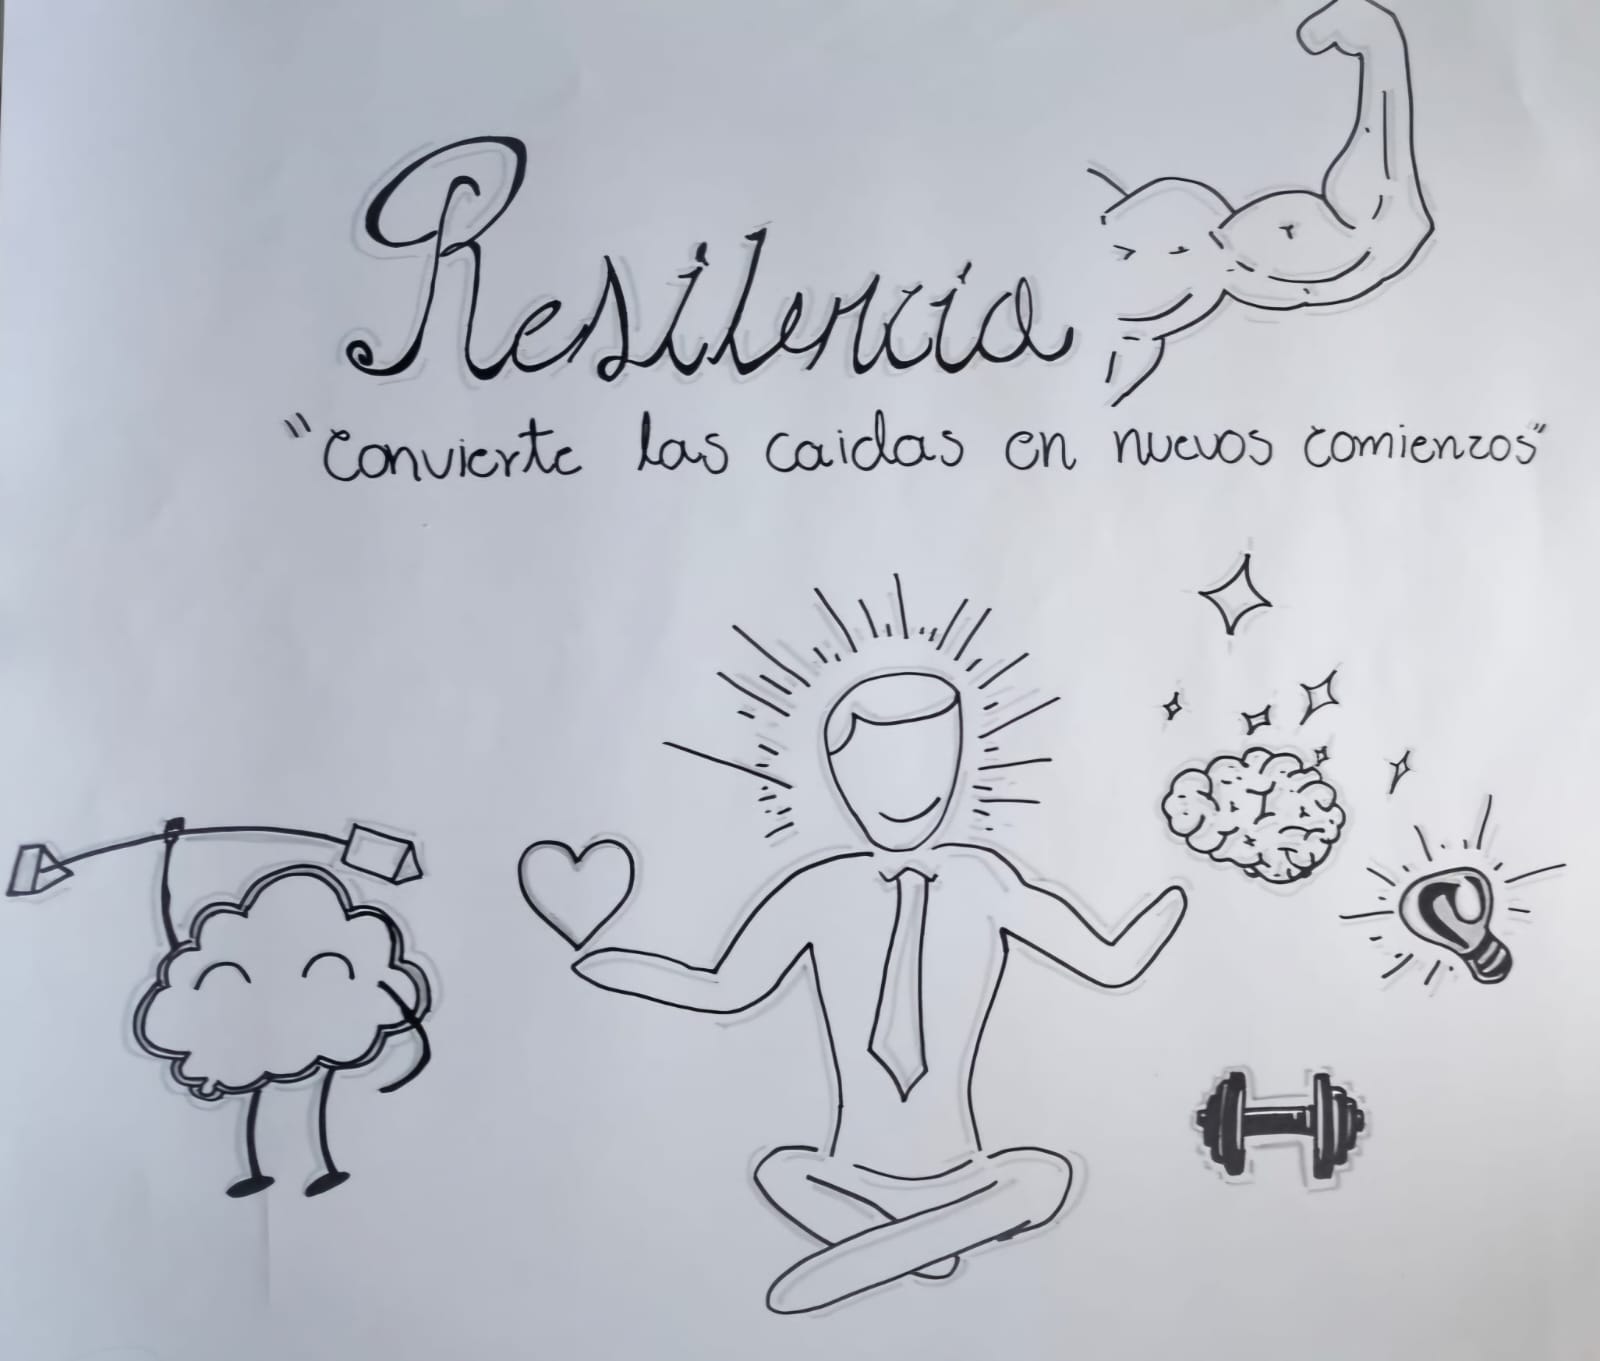 Resilencia
"convierte las caidas en nuevos comienzos"